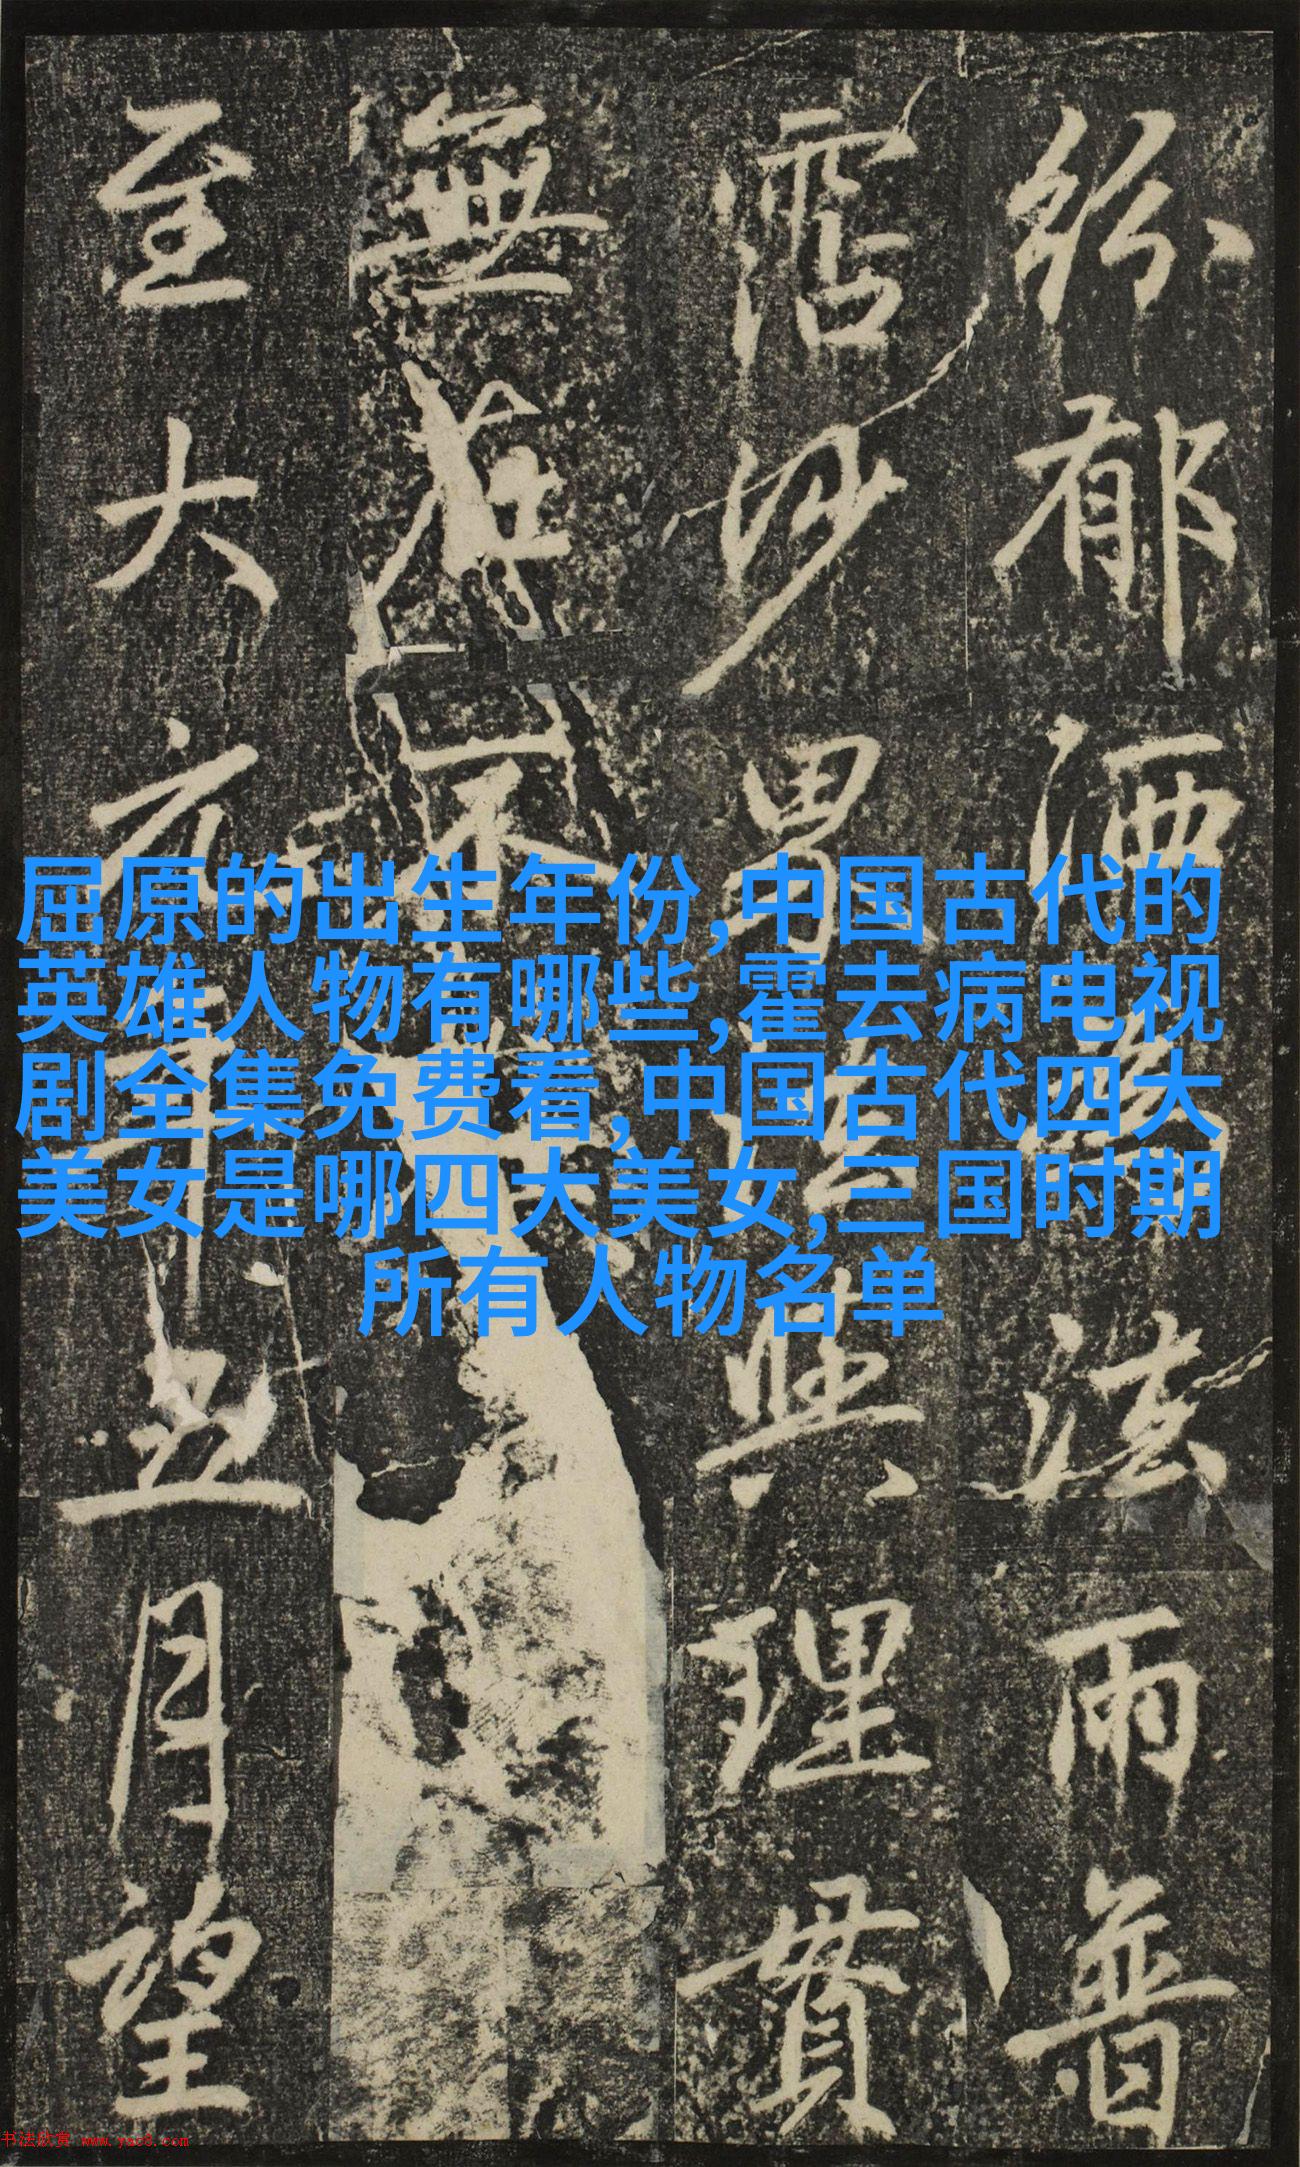 紛郁洒法雨普
霑沙界與理貫
無不
至大年五月望
屈原的出生年份,中国古代的
英雄人物有哪些,霍去病电视
剧全集免费看,中国古代四大
美女是哪四大美女,三国时期
所有人物名单
书法欣赏 www.yac8.com